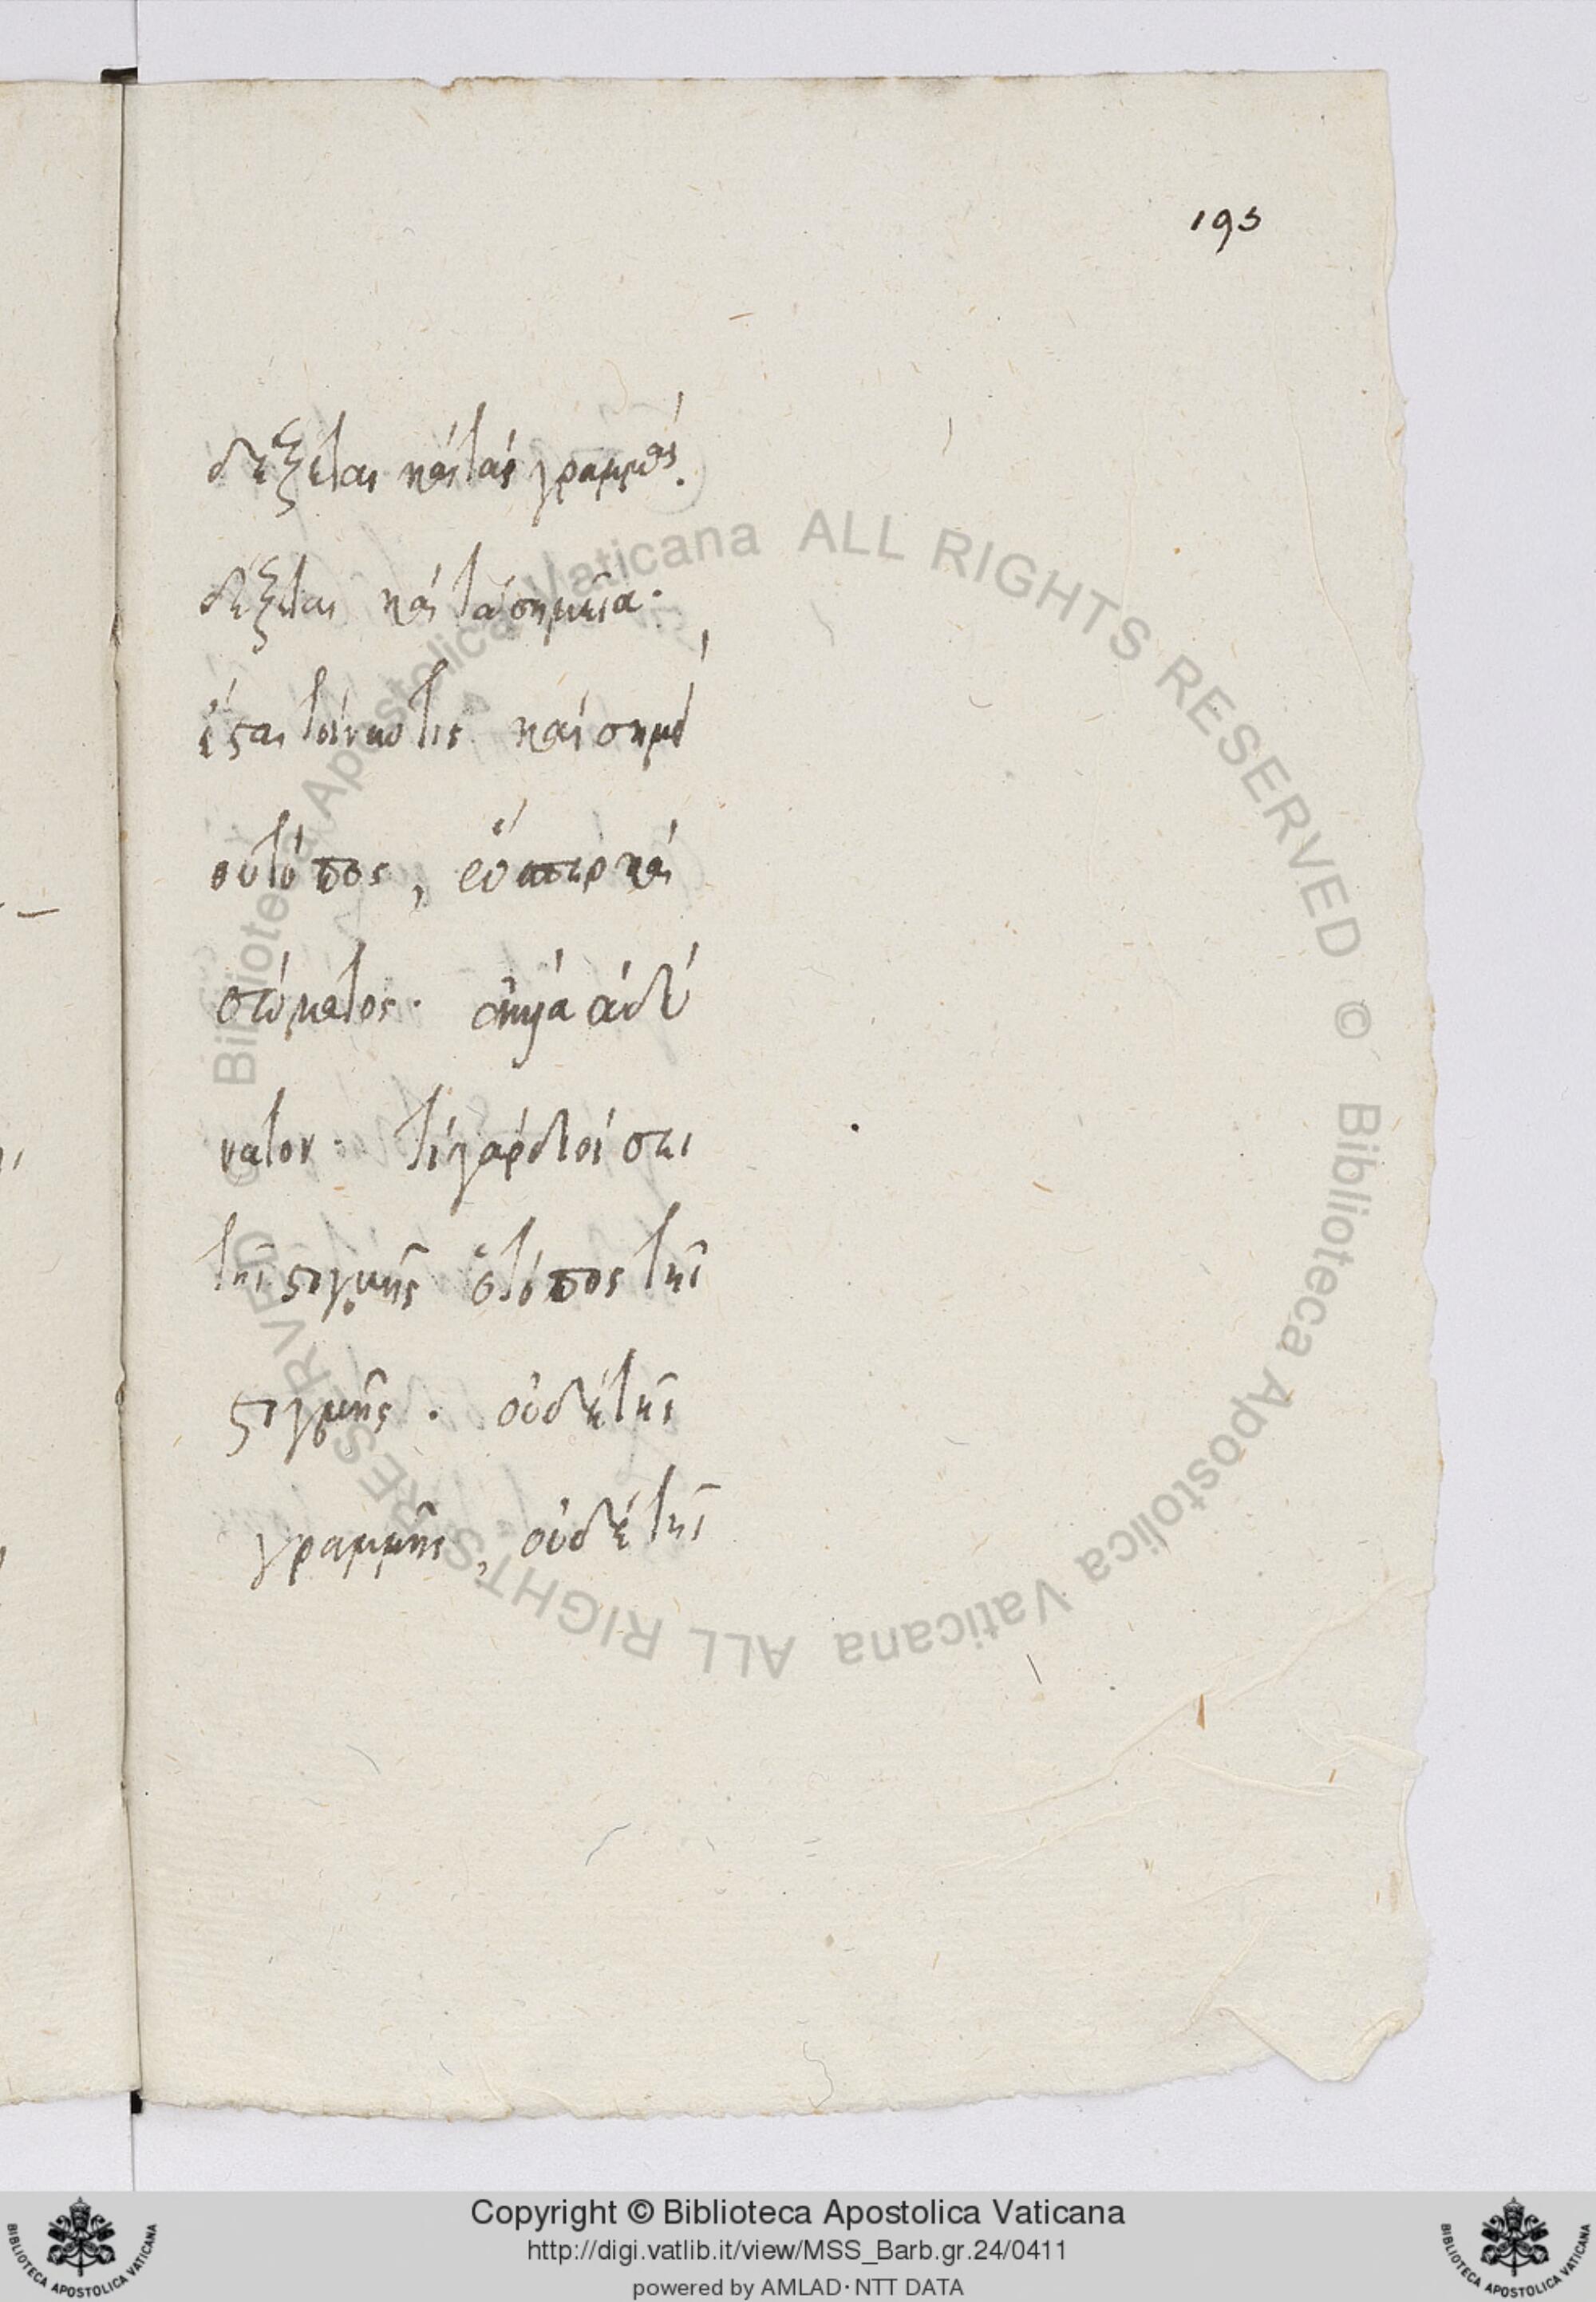 193
δέξεται καὶ τὰς γραμμάς.
δέξεται καὶ τὰ σημεῖα·
ἔσται τοίνυν τις καὶ σημεί
ου τόπος, εἴπερ καὶ
σώματος· ἀλλὰ ἀδύ
νατον· τί γὰρ διοίσει
τῆς στιγμῆς ὁ τόπος τῆς
στιγμῆς. οὐδὲ τῆς
γραμμῆς, οὐδὲ τῆς
Copyright © Biblioteca Apostolica Vaticana
http://digi.vatlib.it/view/MSS_Barb.gr.24/0411
powered by AMLAD·NTT DATA
Biblioteca Apostolica Vaticana ALL RIGHTS RESERVED © Biblioteca Apostolica Vaticana ALL RIGHTS RESERVED ©
BIBLIOTECA APOSTOLICA VATICANA
BIBLIOTECA APOSTOLICA VATICANA